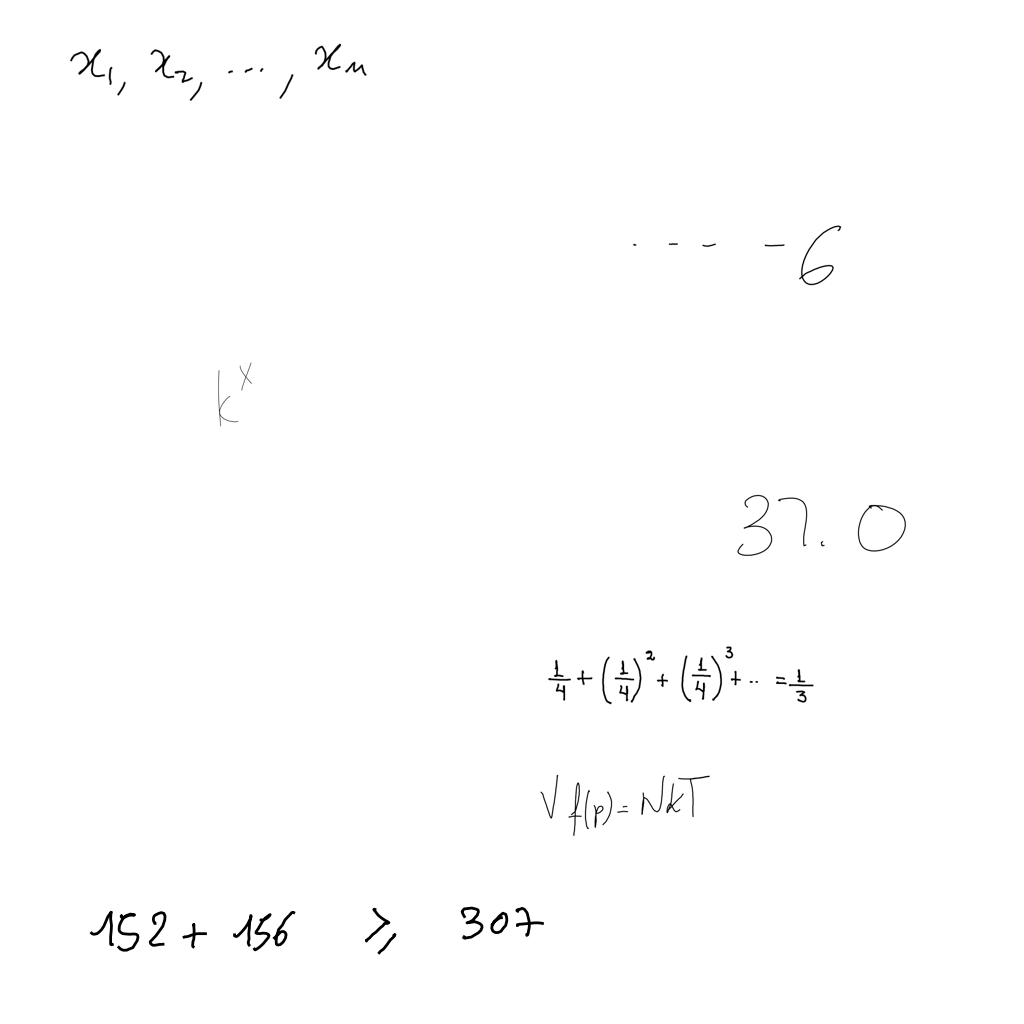 x₁, x₂, ..., xₙ
. - - - 6
kˣ
37.0
1/4 + (1/4)² + (1/4)³ + .. = 1/3
V f(p) = NkT
152 + 156 ⩾ 307